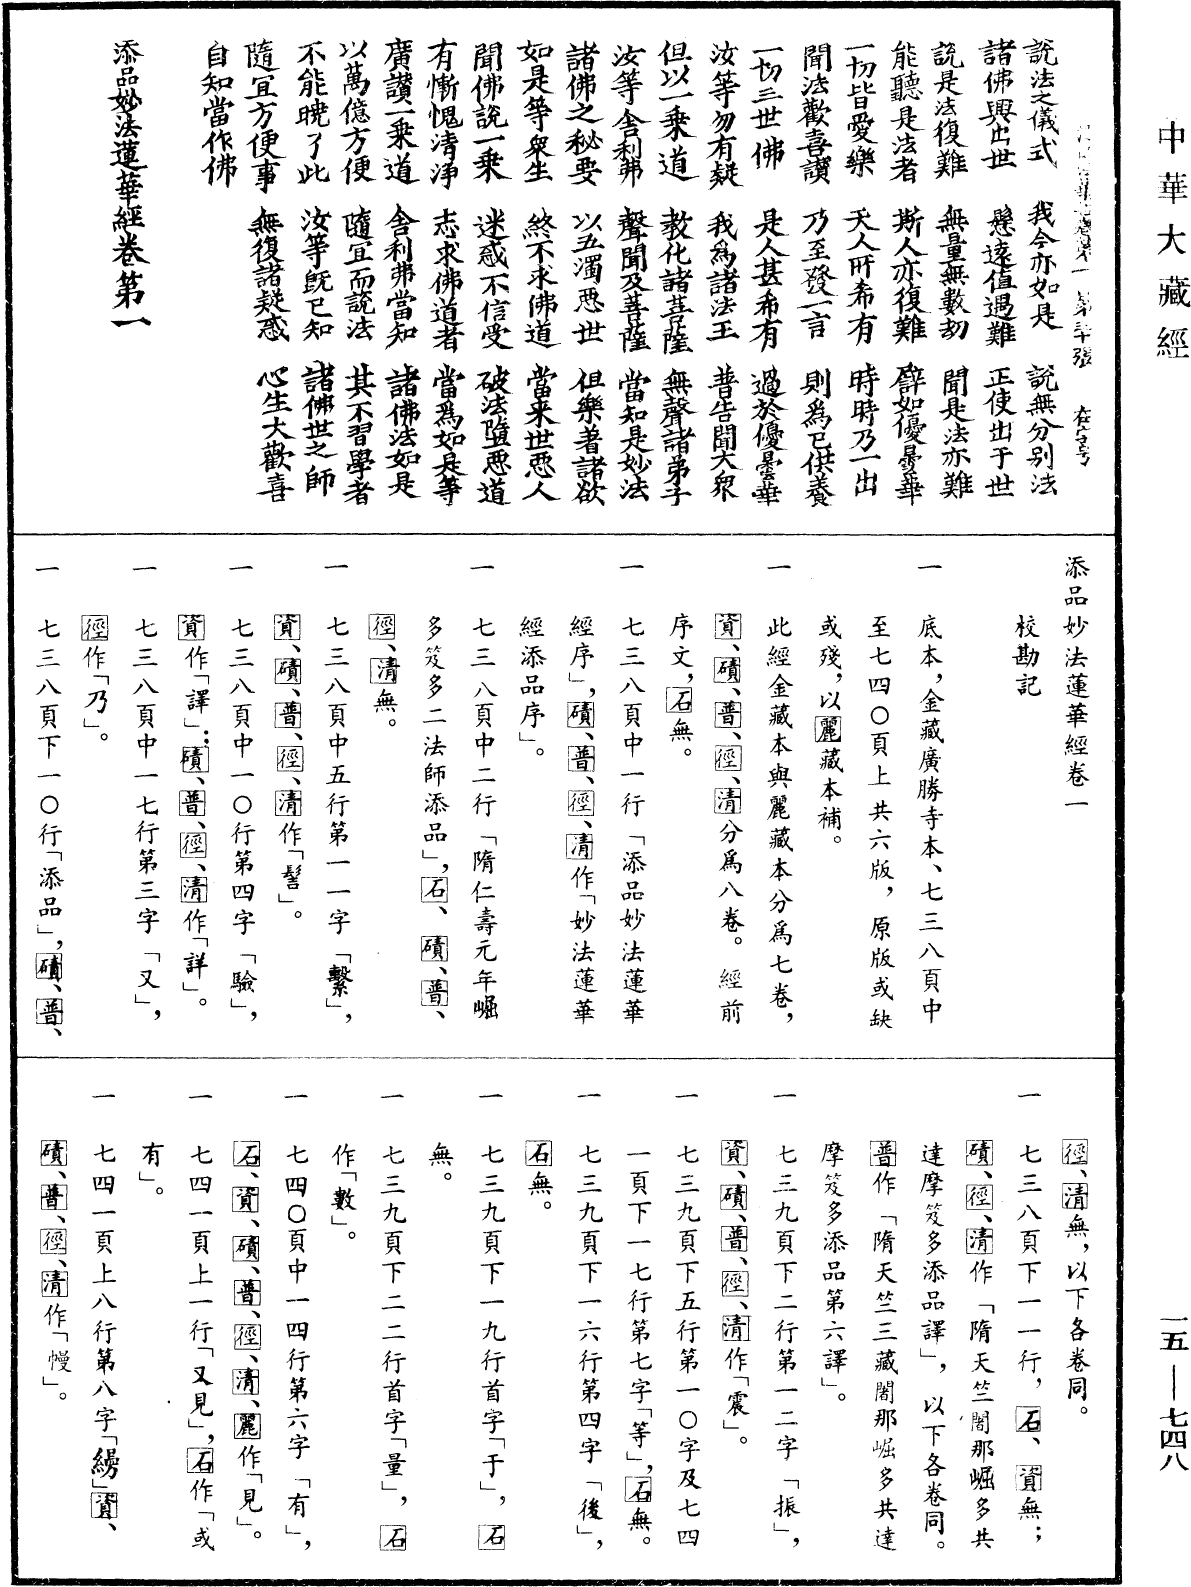 中華大藏經
一五—七四八
說法之儀式　我今亦如是　說無分別法
諸佛興出世　懸遠值遇難　正使出于世
說是法復難　無量無數劫　聞是法亦難
能聽是法者　斯人亦復難　譬如優曇華
一切皆愛樂　天人所希有　時時乃一出
聞法歡喜讚　乃至發一言　則為已供養
一切三世佛　是人甚希有　過於優曇華
汝等勿有疑　我為諸法王　普告聞大眾
但以一乘道　教化諸菩薩　無聲諸弟子
汝等舍利弗　聲聞及菩薩　當知是妙法
諸佛之秘要　以五濁惡世　但樂著諸欲
如是等眾生　終不求佛道　當來世惡人
聞佛說一乘　迷惑不信受　破法墮惡道
有慚愧清淨　志求佛道者　當為如是等
廣讚一乘道　舍利弗當知　諸佛法如是
以萬億方便　隨宜而說法　其不習學者
不能曉了此　汝等既已知　諸佛世之師
隨宜方便事　無復諸疑惑　心生大歡喜
自知當作佛
添品妙法蓮華經卷第一
添品妙法蓮華經卷一
校勘記
一　底本,金藏廣勝寺本、七三八頁中
至七四〇頁上共六版,原版或缺
或殘,以麗藏本補。
一　此經金藏本與麗藏本分爲七卷,
資、磧、普、徑、清分爲八卷。經前
序文,石無。
一　七三八頁中一行「添品妙法蓮華
經序」,磧、普、徑、清作「妙法蓮華
經添品序」。
一　七三八頁中二行「隋仁壽元年崛
多笈多二法師添品」,石、磧、普、
徑、清無。
一　七三八頁中五行第一一字「繫」,
資、磧、普、徑、清作「髻」。
一　七三八頁中一〇行第四字「驗」,
資作「譯」;磧、普、徑、清作「詳」。
一　七三八頁中一七行第三字「又」,
徑作「乃」。
一　七三八頁下一〇行「添品」,磧、普、
徑、清無,以下各卷同。
一　七三八頁下一一行,石、資無;
磧、徑、清作「隋天竺闍那崛多共
達摩笈多添品譯」,以下各卷同。
普作「隋天竺三藏闍那崛多共達
摩笈多添品第六譯」。
一　七三九頁下二行第一二字「振」,
資、磧、普、徑、清作「震」。
一　七三九頁下五行第一〇字及七四
一頁下一七行第七字「等」,石無。
一　七三九頁下一六行第四字「後」,
石無。
一　七三九頁下一九行首字「于」,石
無。
一　七三九頁下二二行首字「量」,石
作「數」。
一　七四〇頁中一四行第六字「有」,
石、資、磧、普、徑、清、麗作「見」。
一　七四一頁上一行「又見」,石作「或
有」。
一　七四一頁上八行第八字「縵」資、
磧、普、徑、清作「幔」。